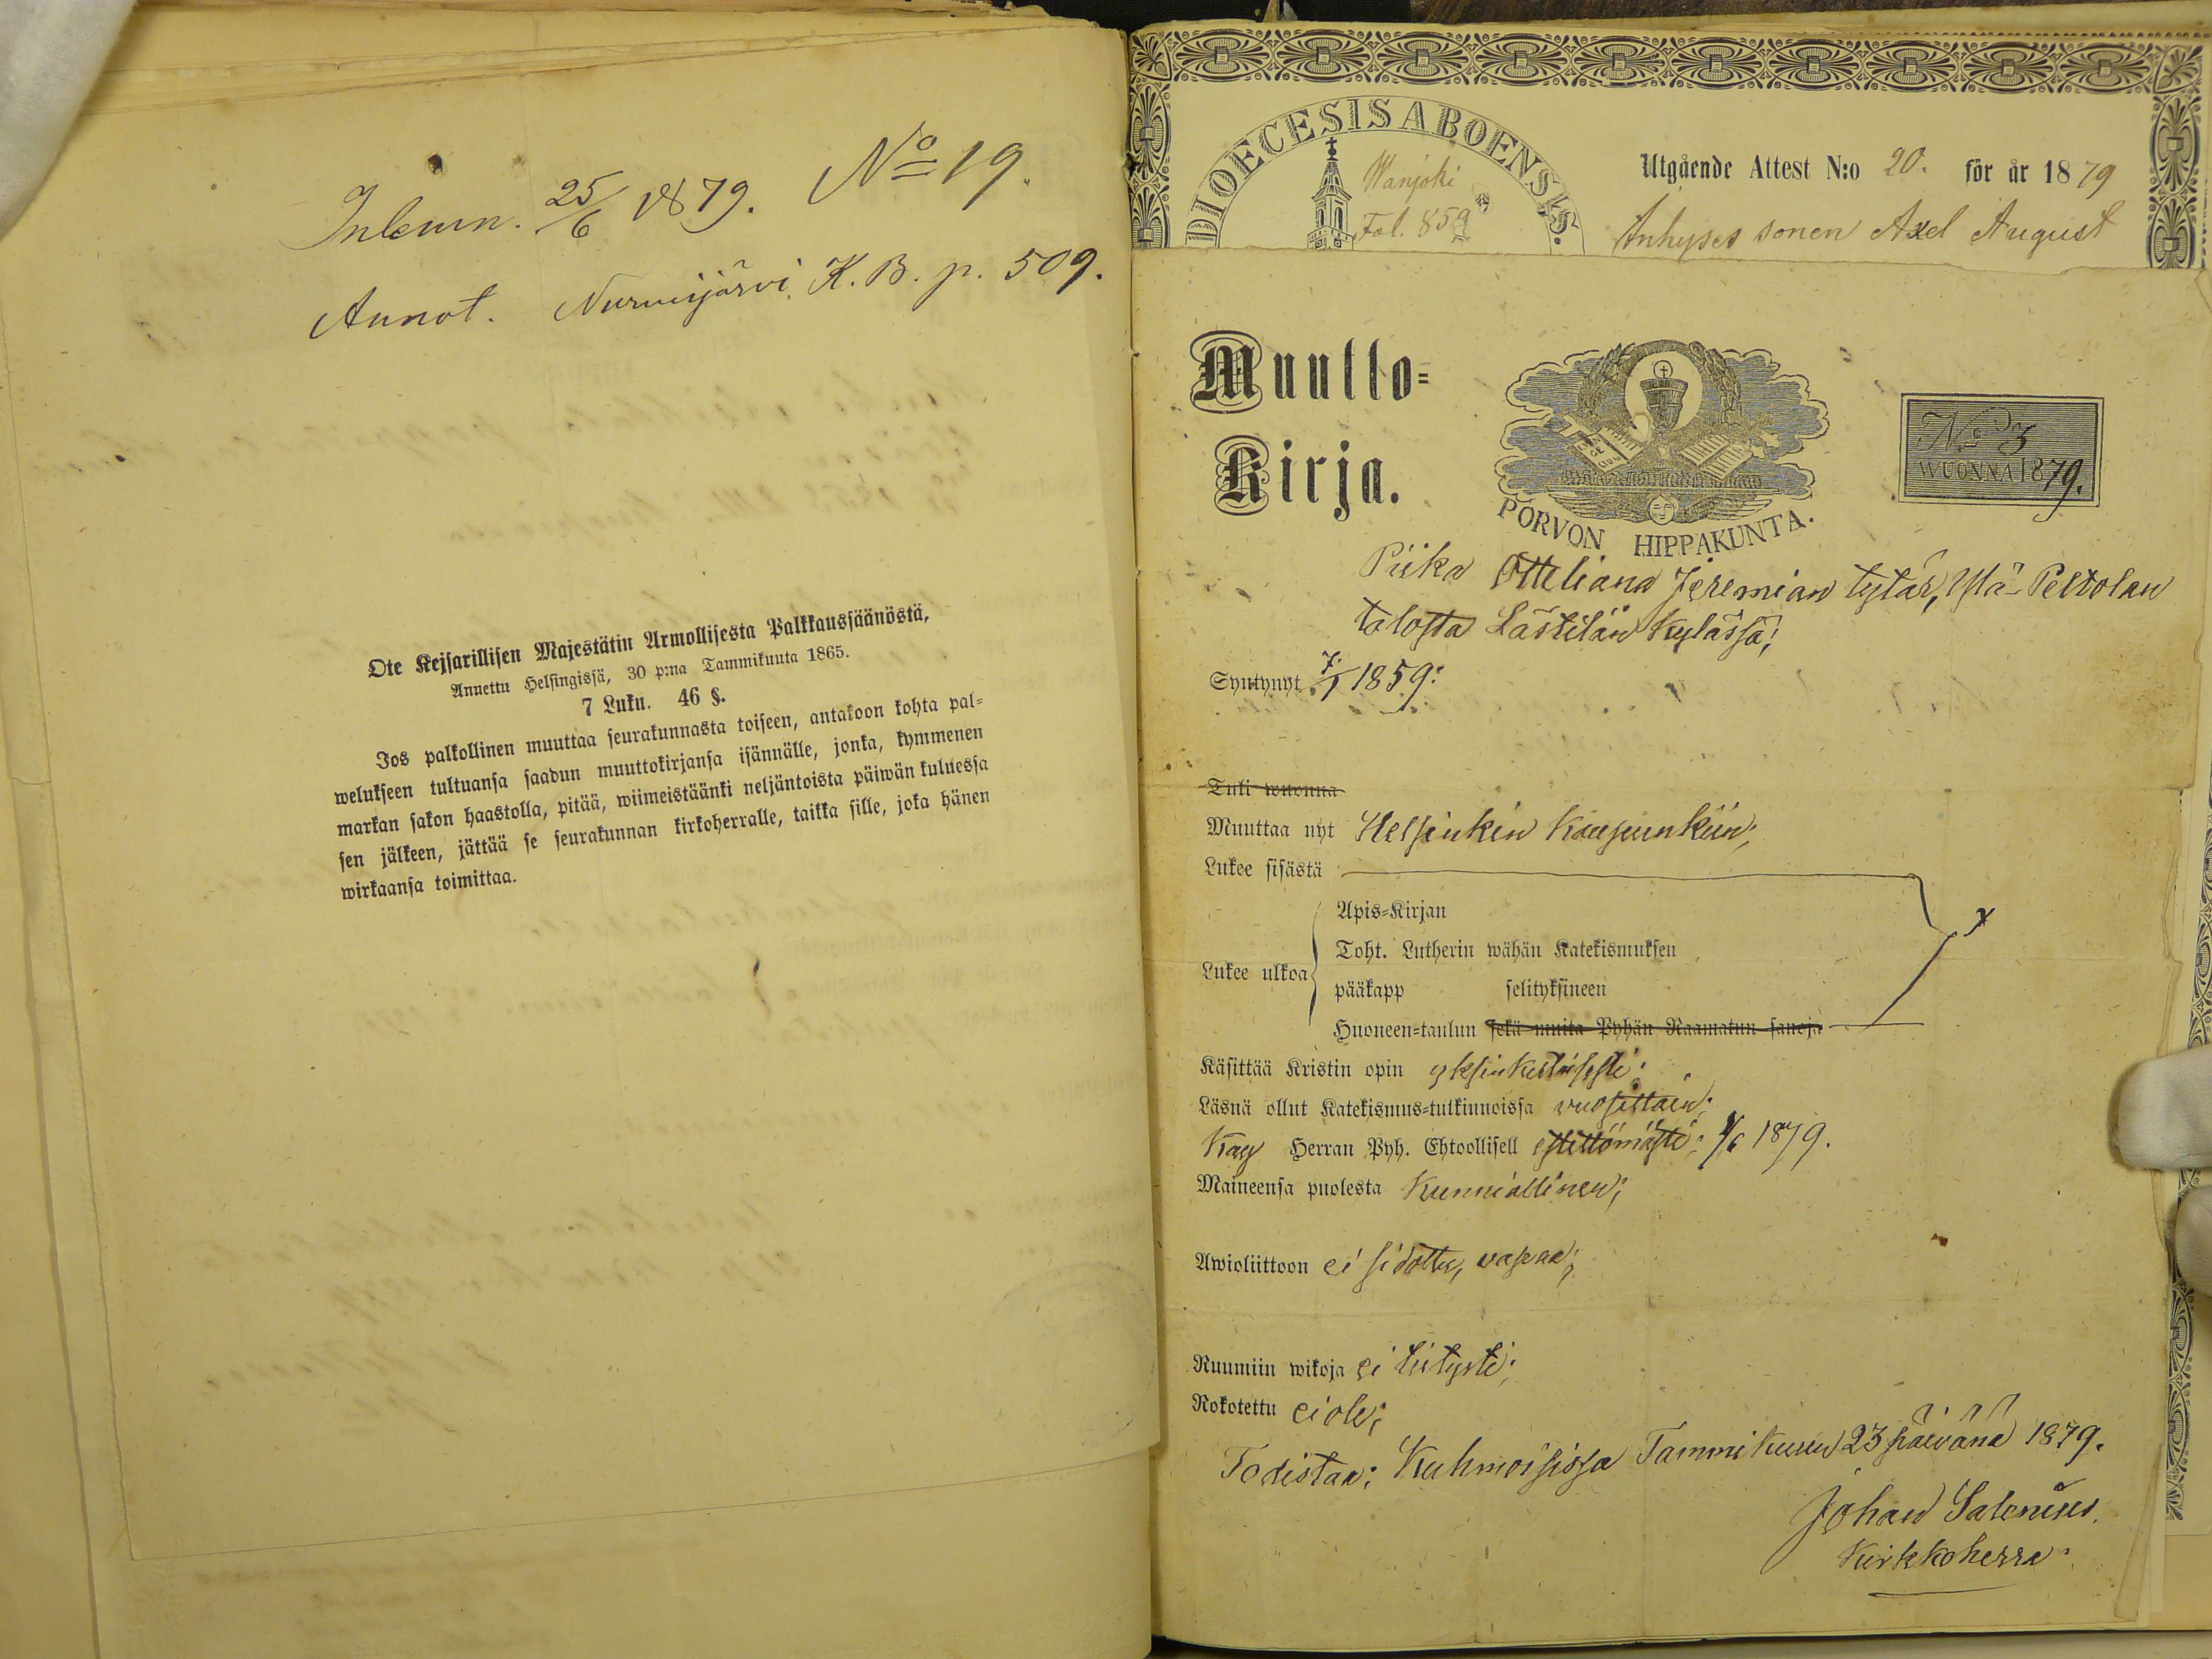 Inlemn. 25/6 1879. No 19.
Annot. Nurmijärvi K. B. p. 509.
Ote Kejsarillisen Majestätin Armollisesta Palkkaussäänöstä,
Annettu Helsingissä, 30 p:na Tammikuuta 1865.
7 Luku. 46 §.
Jos palkollinen muuttaa seurakunnasta toiseen, antakoon kohta pal-
welukseen tultuansa saadun muuttokirjansa isännälle, jonka, kymmenen
markan sakon haastolla, pitää, wiimeistäänki neljäntoista päiwän kuluessa
sen jälkeen, jättää se seurakunnan kirkoherralle, taikka sille, joka hänen
wirkaansa toimittaa.
DIOECESIS ABOENSIS.
Wanjoki
Fol. 859
Utgående Attest N:o 20. för år 1879
Inhyses sonen Axel August
Muutto-
Kirja.
PORVON HIPPAKUNTA.
No 3
WUONNA 1879.
Piika Otteliana Jeremian tytär, Ylä-Peltolan
talosta Lästilän kylässä;
Syntynyt 7/1 1859:
Tuli wuonna
Muuttaa nyt Helsinkin Kaupunkiin;
Lukee sisästä
Apis-Kirjan
Toht. Lutherin wähän Katekismuksen
Lukee ulkoa
pääkapp selityksineen
Huoneen-taulun sekä muita Pyhän Raamatun sanoja
Käsittää Kristin opin yksinkertaisesti;
Läsnä ollut Katekismus-tutkinnoissa vuosittain;
Käy Herran Pyh. Ehtoollisell estettömästi; 1/6 1879.
Maineensa puolesta Kunniallinen;
Awioliittoon ei sidottu, vapaa;
Ruumiin wikoja ei tietysti;
Rokotettu ei ole;
Todistaa: Kuhmoisissa Tammikuun 23 päivänä 1879.
Johan Salenius.
Kirkkoherra.